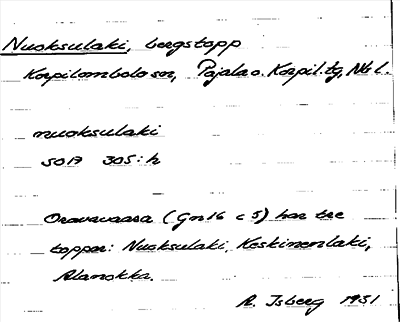 Nuoksulaki, bergstopp
Korpilombolo sn, Pajala o. Korpil. tg, Nb l.
nuoksulaki
50 A 305:h
Oravavaara (Gn16 c5) har tre
toppar: Nuoksulaki, Keskimenlaki,
Alanokka.
R. Isberg 1931